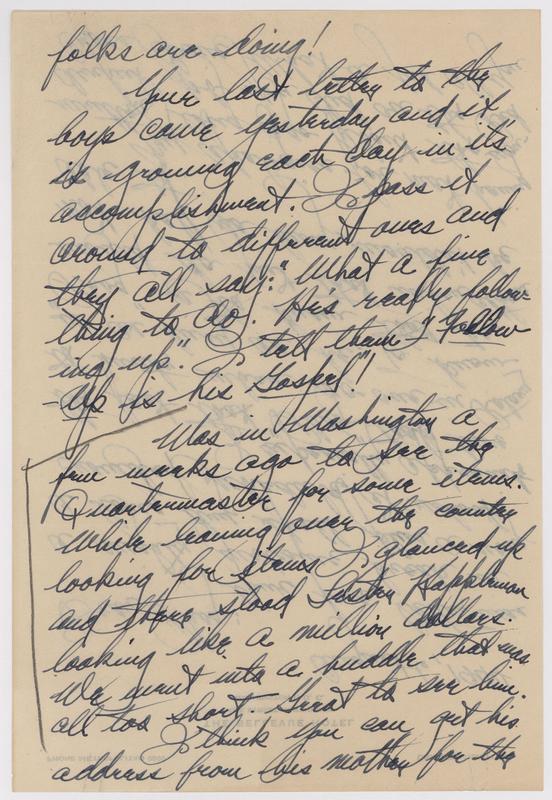 folks are doing!
Your last letter to the
boys came yesterday and it
is growing each day in its
accomplishment. I pass it
around to different ones and
they all say: "What a fine
thing to do! He's really follow-
ing up." I tell them "Follow
-Up is his Gospel"!
Was in Washington a
few weeks ago to see the
Quartermaster for some items.
While leaning over the counter
looking for items I glanced up
and there stood Lester Happleman
looking like a million dollars.
We went into a huddle that was
all too short. Great to see him.
I think you can get his
address from his mother for the
THE BELLEVUE HOTEL